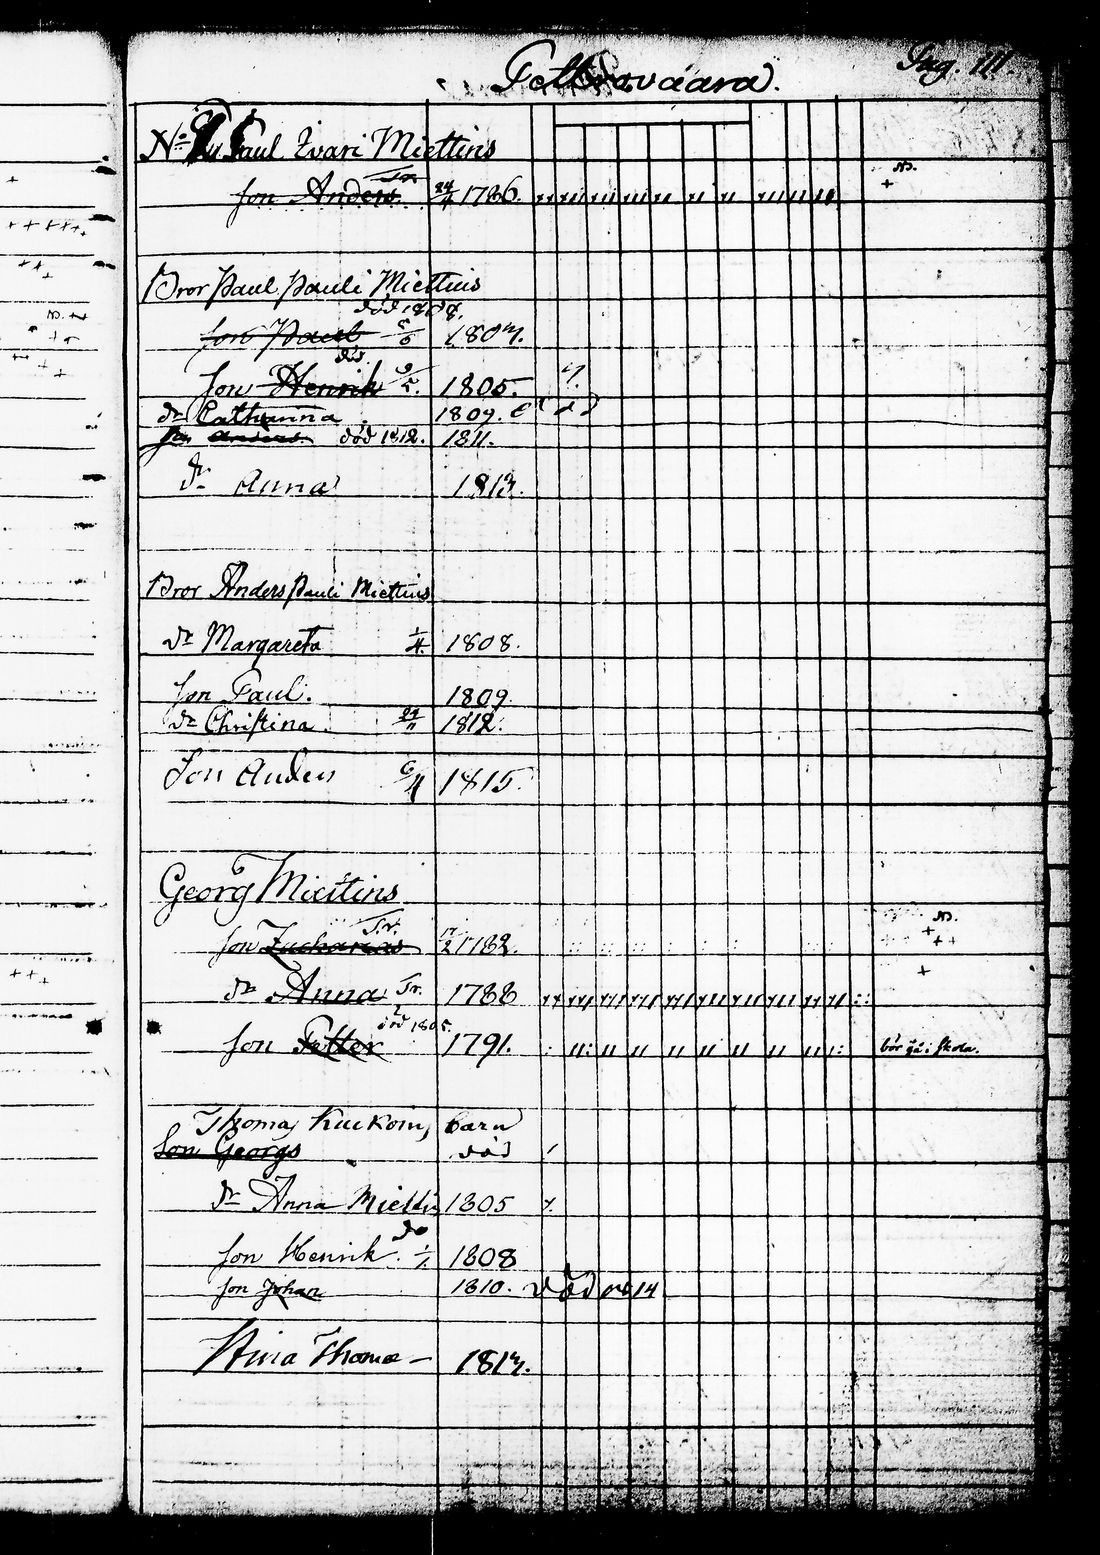 Pag. 111.
Pettravaara.
No Paul Ivari Miettins
Son Anders Tr. 24/4 1786. N.
Bror Paul Pauli Miettins
död 1808.
Son Paul 5/6 1807.
död
Son Henrik 9/5. 1805.
dr Catharina 1809.
Son Anders död 1812. 1811.
dr Anna 1813.
Bror Anders Pauli Miettins
dr Margareta 1/4. 1808.
Son Paul. 1809.
dr Christina 24/11 1812.
Son Anders 6/4 1815.
Georg Miettins
Son Zacharias Tr. 17/2 1782. N.
dr Anna Tr. 1788
död 1805.
Son Petter 1791. bör gå i Skola.
Thomas Kuckoins barn
Son Georgs död
dr Anna Miettins 1805
do
Son Henrik. 1/1. 1808
Son Johan 1810. död 1814
Stina Thoma 1817.